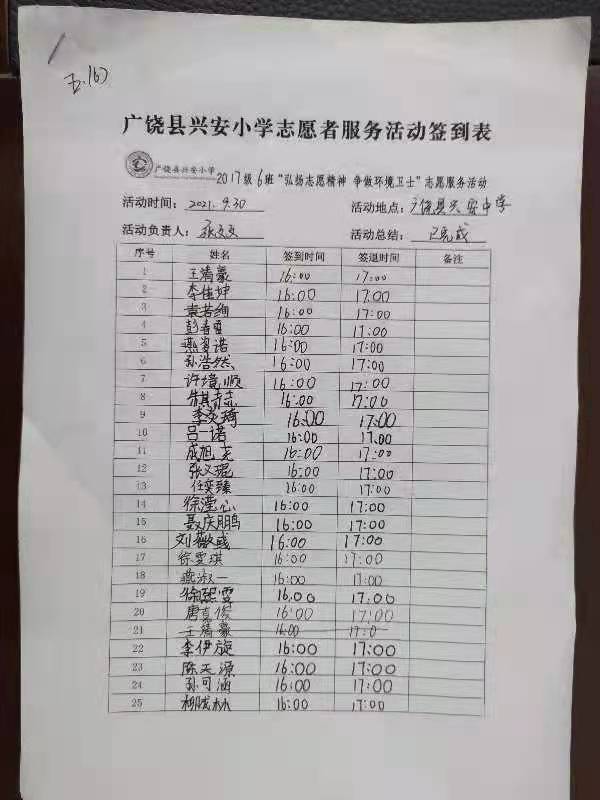 五.(6)
广饶县兴安小学志愿者服务活动签到表
广饶县兴安小学 2017级6班“弘扬志愿精神 争做环境卫士”志愿服务活动
活动时间： 2021.9.30 活动地点：广饶县兴安中学
活动负责人： 活动总结： 已完成
序号 姓名 签到时间 签退时间 备注
1 王精豪 16:00 17:00
2 李佳坤 16:00 17:00
3 袁若绚 16:00 17:00
4 16:00 17:00
5 燕姿诺 16:00 17:00
6 孙浩然 16:00 17:00
7 许境顺 16:00 17:00
8 16:00 17:00
9 李奕琦 16:00 17:00
10 吕一诺 16:00 17:00
11 成旭尧 16:00 17:00
12 张义琨 16:00 17:00
13 任奕臻 16:00 17:00
14 徐滢心 16:00 17:00
15 聂庆鹏 16:00 17:00
16 刘薇彧 16:00 17:00
17 徐雯琪 16:00 17:00
18 燕淑一 16:00 17:00
19 徐熙雯 16:00 17:00
20 唐克俊 16:00 17:00
21 王精豪 16:00 17:0
22 李伊旋 16:00 17:00
23 陈天源 16:00 17:00
24 孙可涵 16:00 17:00
25 柳陇林 16:00 17:00